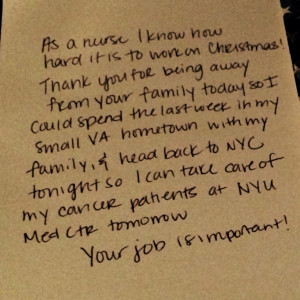 As a nurse I know how
hard it is to work on Christmas!
Thank you for being away
from your family today so I
could spend the last week in my
small VA hometown with my
family, & head back to NYC
tonight so I can take care of
my cancer patients at NYU
Med CTR tomorrow
Your job is important!